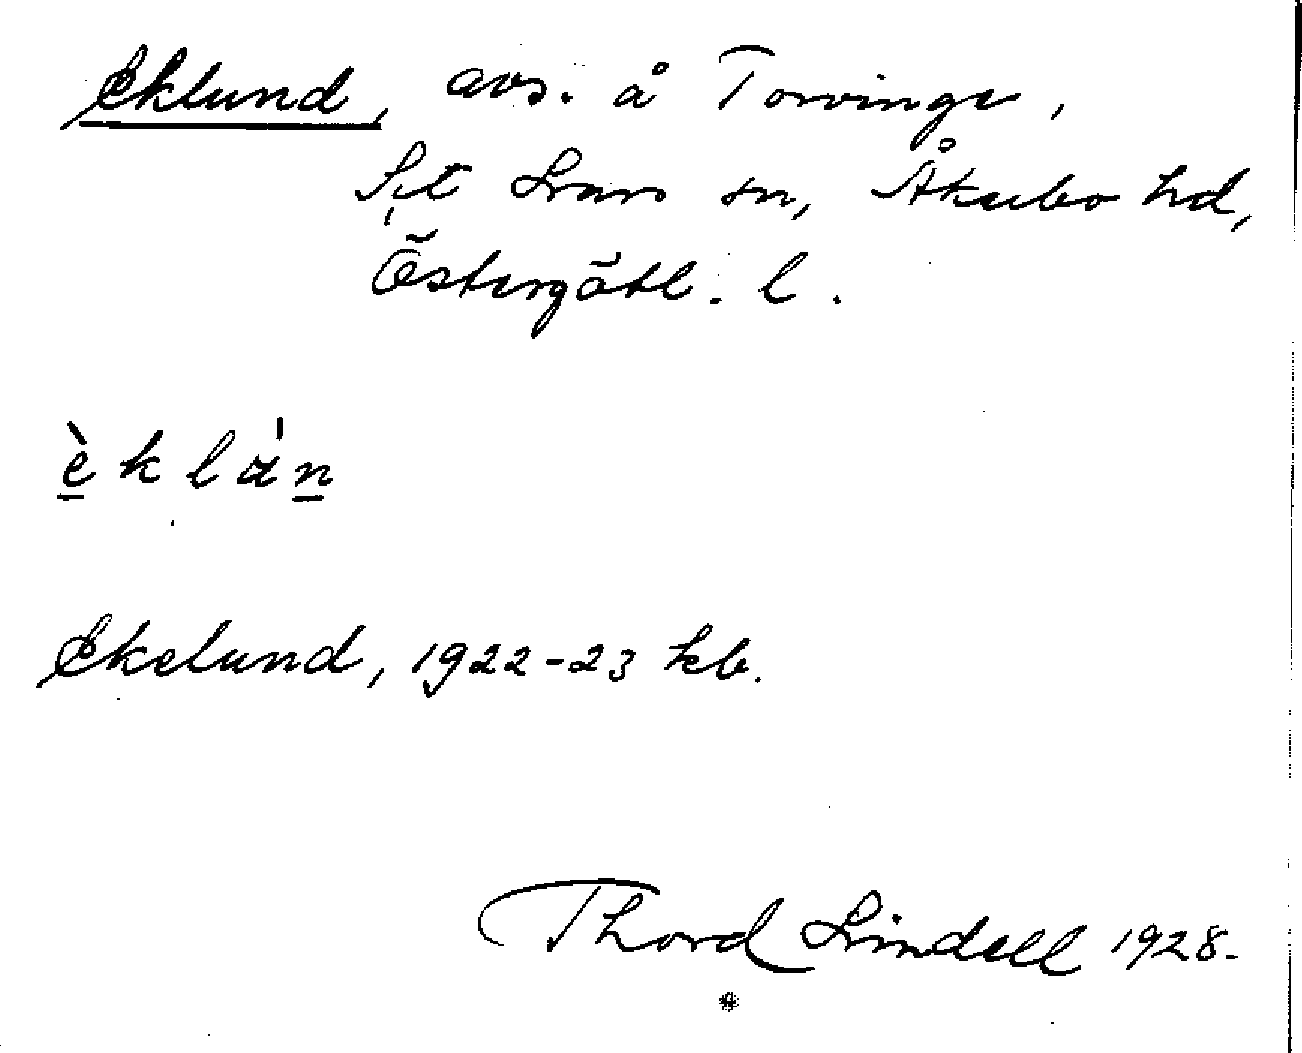 Eklund, avs. å Torvinge,
S:t Lars sn, Åkerbo hd,
Östergötl. l.
èklàn
Ekelund, 1922-23 kb.
Thord Lindell 1928.